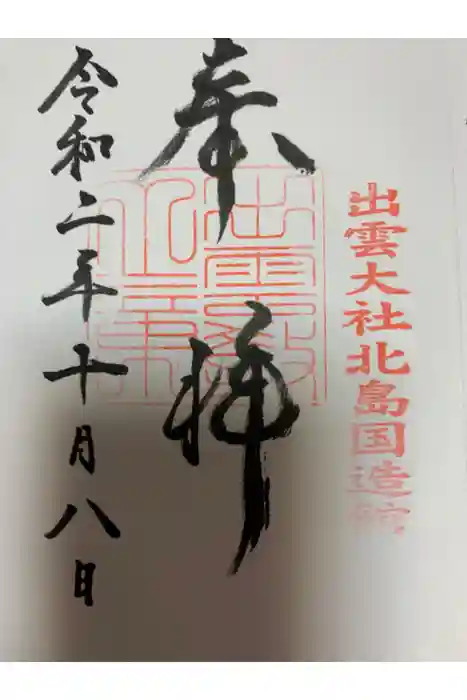 出雲大社北島国造館
奉拝
令和二年十月八日